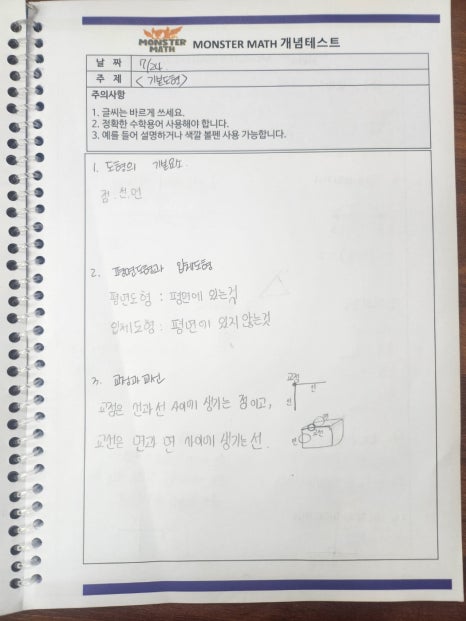 MONSTER MATH
MONSTER MATH 개념테스트
날 짜 7/24
주 제 < 기본도형>
주의사항
1. 글씨는 바르게 쓰세요.
2. 정확한 수학용어 사용해야 합니다.
3. 예를 들어 설명하거나 색깔 볼펜 사용 가능합니다.
1. 도형의 기본요소.
점. 선. 면
2. 평면도형과 입체도형
평면도형 : 평면에 있는것
입체도형 : 평면에 있지 않는것
3. 교점과 교선
교점
선
선
교점은 선과 선 사이에 생기는 점이고,
면
교선
면
교선은 면과 면 사이에 생기는 선.